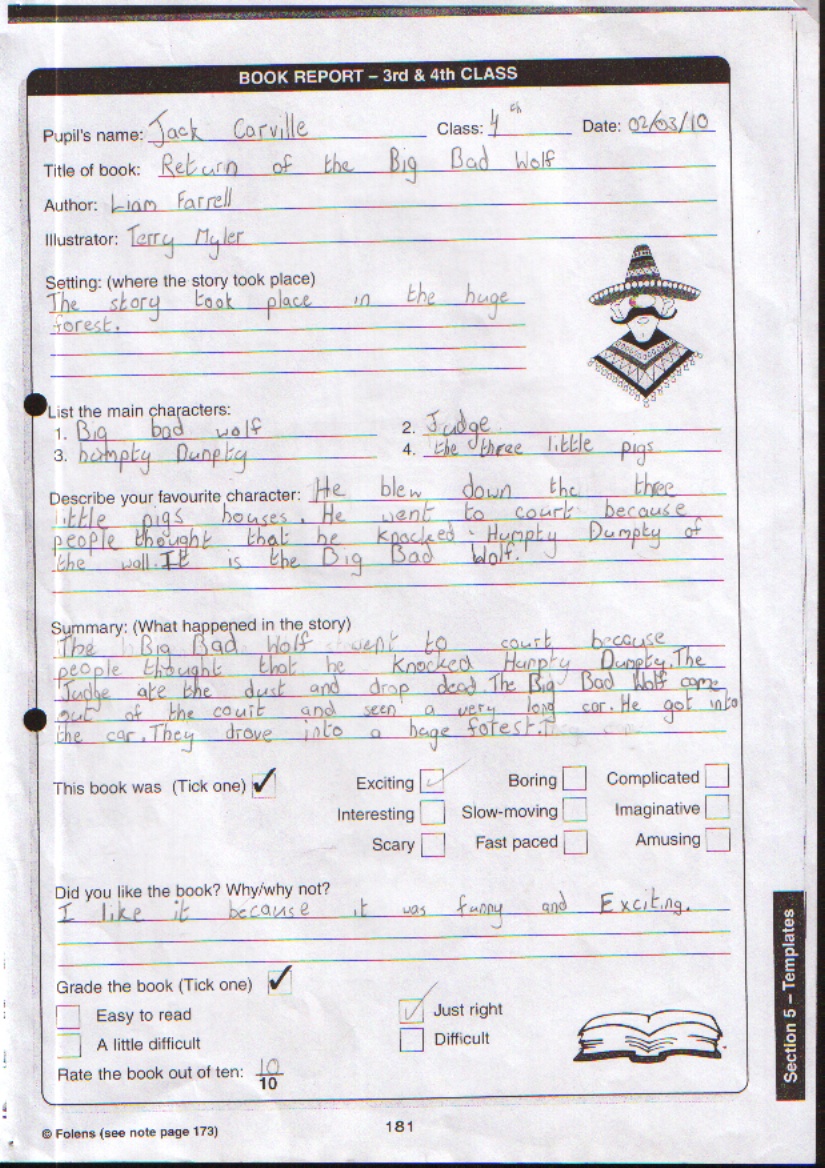 BOOK REPORT – 3rd & 4th CLASS
Pupil's name: Jack Carville Class: 4th Date: 02/03/10
Title of book: Return of the Big Bad Wolf
Author: Liam Farrell
Illustrator: Terry Myler
Setting: (where the story took place)
The story took place in the huge
forest.
List the main characters:
1. Big bad wolf 2. Judge
3. humpty Dunpty 4. the three little pigs
Describe your favourite character: He blew down the three
little pigs houses. He went to court because
people thought that he knocked Humpty Dumpty of
the wall. It is the Big Bad Wolf.
Summary: (What happened in the story)
The Big Bad Wolf went to court because
people thought that he Knocked Humpty Dumpty. The
Judge ate the dust and drop dead. The Big Bad Wolf came
out of the court and seen a very long car. He got into
the car. They drove into a huge forest.
This book was (Tick one) ✓ Exciting ✓ Boring Complicated
Interesting Slow-moving Imaginative
Scary Fast paced Amusing
Did you like the book? Why/why not?
I like it because it was funny and Exciting.
Grade the book (Tick one) ✓
Easy to read ✓ Just right
A little difficult Difficult
Rate the book out of ten: 10
10
Section 5 – Templates
© Folens (see note page 173) 181